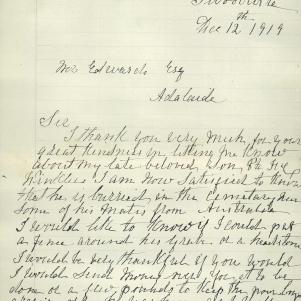 Dec 12th 1919
Mr Edwards Esq
Adalaide
Sir
I thank you very much for your
great kindness in letting me know
about my late beloved Son,
I am now Satisfied to know
that he is burried in the Cemetary
Some of his mates from Australia
I would like to know if I could put
a fence around his Grave or a headstone
I would be very thankful if you would
I would Send money over to be
done or a few pounds to keep the poor